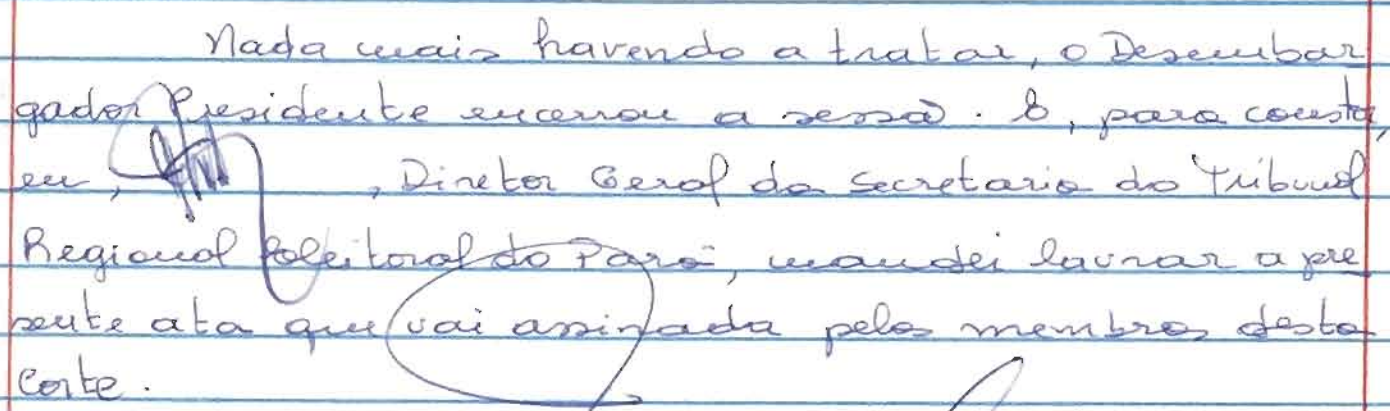 Nada mais havendo a tratar, o Desembar
gador Presidente encerrou a sessão. E, para consta,
eu, , Diretor Geral da Secretaria do Tribunal
Regional Eleitoral do Pará, mandei lavrar a pre
sente ata que vai assinada pelos membros desta
Corte.